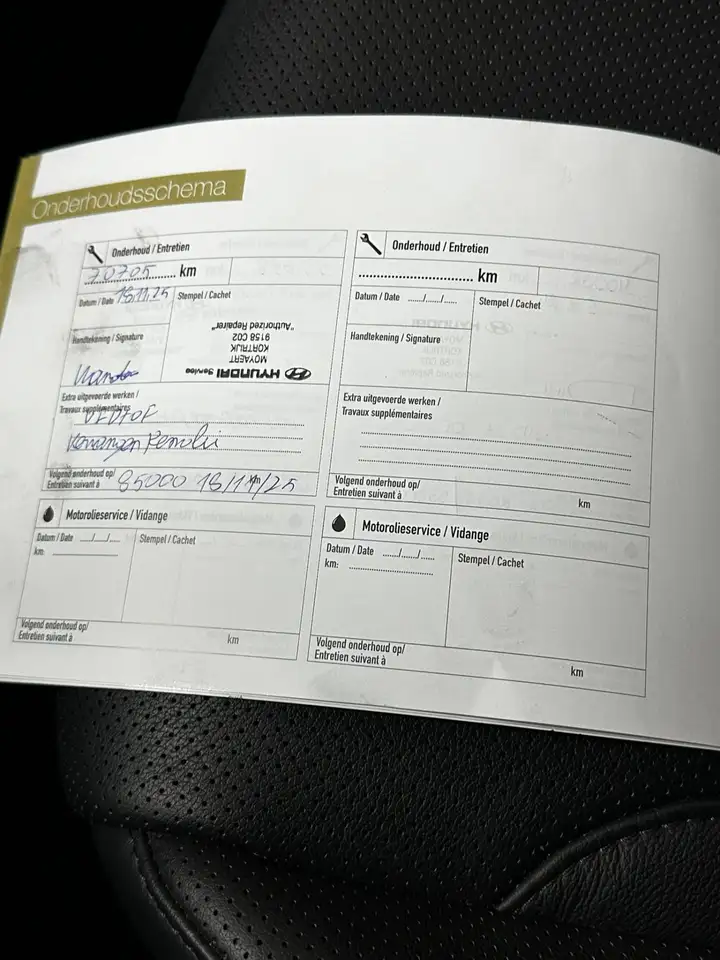 Onderhoudsschema
Onderhoud / Entretien
70705 km
Datum / Date 18.11.25
Stempel / Cachet
HYUNDAI Service
MOYAERT
KORTRIJK
9158 C02
"Authorized Repairer"
Handtekening / Signature
Extra uitgevoerde werken /
Travaux supplémentaires
Volgend onderhoud op/
Entretien suivant à 85000 18/11/25 km
Motorolieservice / Vidange
Datum / Date __/__/__
Stempel / Cachet
km:
Volgend onderhoud op/
Entretien suivant à km
Onderhoud / Entretien
km
Datum / Date ___/___/___
Stempel / Cachet
Handtekening / Signature
Extra uitgevoerde werken /
Travaux supplémentaires
Volgend onderhoud op/
Entretien suivant à km
Motorolieservice / Vidange
Datum / Date ___/___/___
Stempel / Cachet
km:
Volgend onderhoud op/
Entretien suivant à km